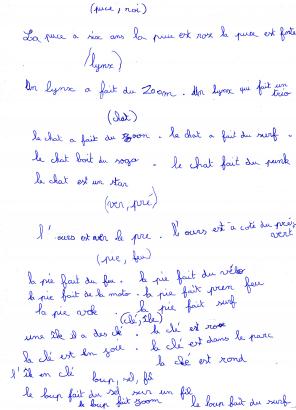 (puce, roi)
La puce a six ans la puce est rose la puce est forte
(lynx)
Un lynx a fait du zoom. Un lynx qui fait un trio
(chat)
le chat a fait du zoom. le chat a fait du surf.
le chat boit du soga. le chat fait du punk
le chat est un star
(ver, pré)
l'ours est le pre. l'ours est a coté du prés vert
(pie, feu)
la pie fait du feu. la pie fait du vélo
la pie fait de la moto. la pie fait pren feu
la pie vole. la pie fait surf
(clé, île)
une île il a des clé. la clé est rose
la clé est en joie. la clé est dans le parc
l'île en clé la clé est rond
loup, sel, fil
le loup fait du sel sur un fil
le loup fait zoom le loup fait du surf.